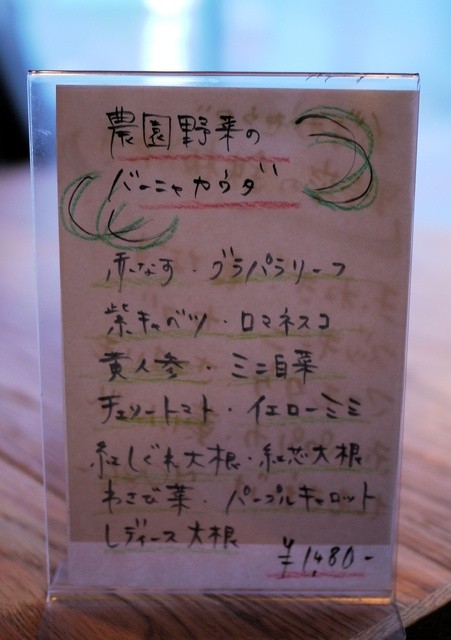 農園野菜の
バーニャカウダ
赤なす・グラパラリーフ
紫キャベツ・ロマネスコ
黄人参・ミニ白菜
チェリートマト・イエローミミ
紅しぐれ大根・紅芯大根
わさび菜・パープルキャロット
レディース大根
¥1,480-